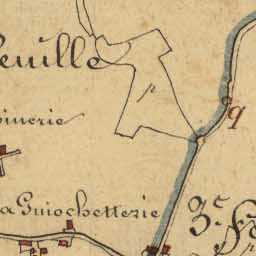 euille
p
inerie
q
a Guiochetterie
3.e